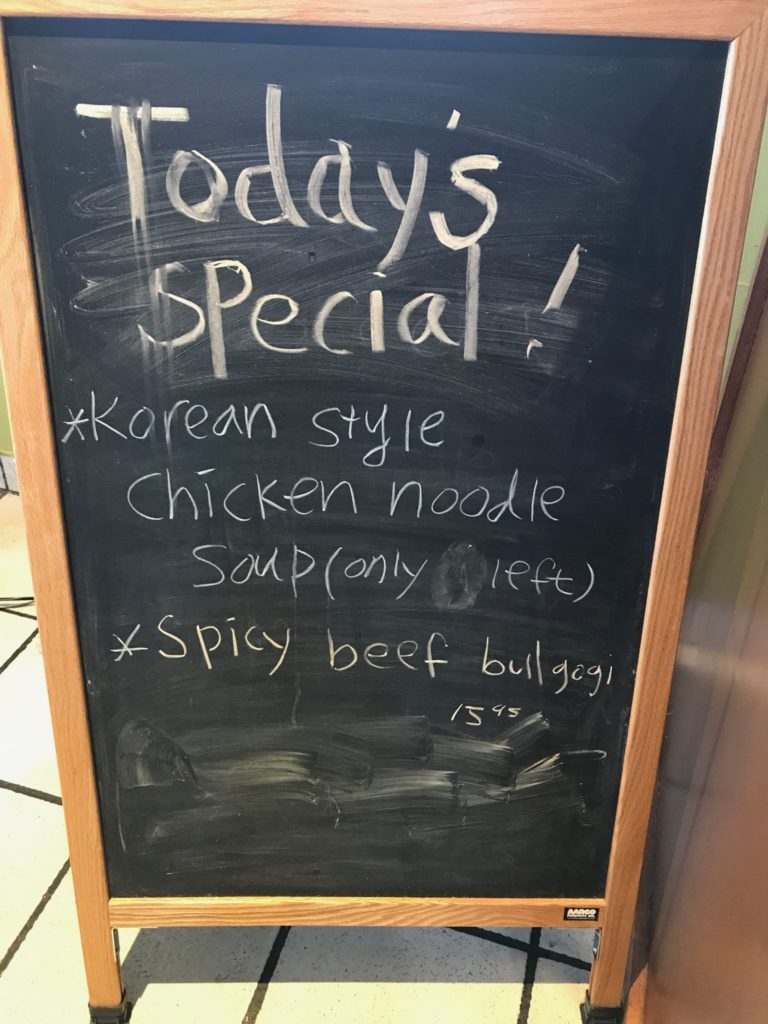 Today's
special!
*Korean style
chicken noodle
soup (only left)
*Spicy beef bullgogi
15 95
AARCO